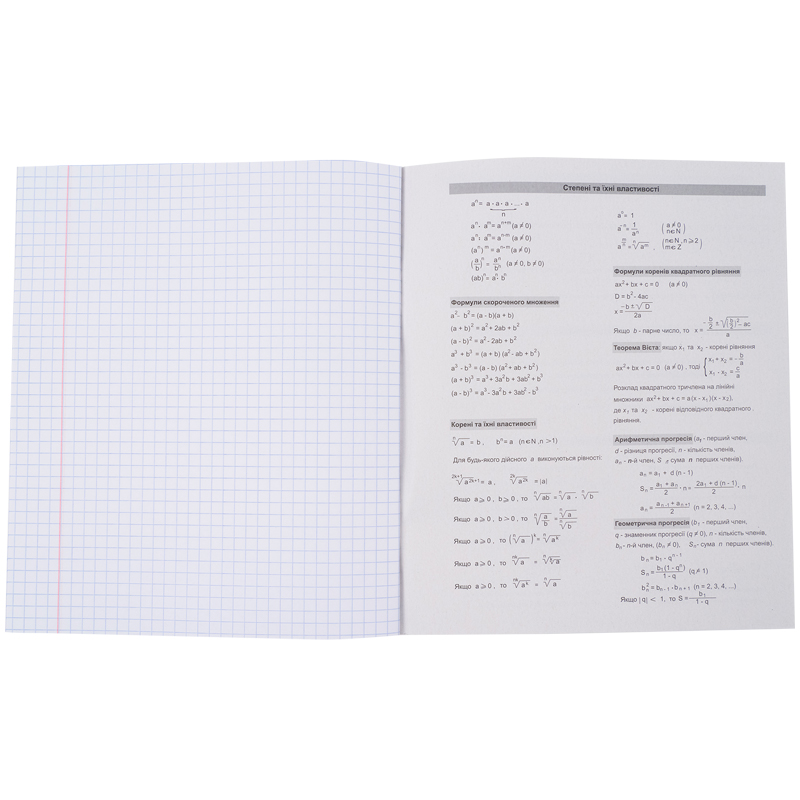 Степені та їхні властивості
aⁿ = a · a · a · ... · a
n
aⁿ · aᵐ = aⁿ⁺ᵐ (a ≠ 0)
aⁿ : aᵐ = aⁿ⁻ᵐ (a ≠ 0)
(aⁿ)ᵐ = aⁿ·ᵐ (a ≠ 0)
(a/b)ⁿ = aⁿ/bⁿ (a ≠ 0, b ≠ 0)
(ab)ⁿ = aⁿ · bⁿ
Формули скороченого множення
a² - b² = (a - b)(a + b)
(a + b)² = a² + 2ab + b²
(a - b)² = a² - 2ab + b²
a³ + b³ = (a + b) (a² - ab + b²)
a³ - b³ = (a - b) (a² + ab + b²)
(a + b)³ = a³ + 3a²b + 3ab² + b³
(a - b)³ = a³ - 3a²b + 3ab² - b³
Корені та їхні властивості
ⁿ√a = b , bⁿ = a (n∈N , n > 1)
Для будь-якого дійсного a виконуються рівності:
²ᵏ⁺¹√a²ᵏ⁺¹ = a , ²ᵏ√a²ᵏ = |a|
Якщо a ⩾ 0 , b ⩾ 0 , то ⁿ√ab = ⁿ√a · ⁿ√b
Якщо a ⩾ 0 , b > 0 , то ⁿ√(a/b) = ⁿ√a / ⁿ√b
Якщо a ⩾ 0 , то (ⁿ√a)ᵏ = ⁿ√aᵏ
Якщо a ⩾ 0 , то
Якщо a ⩾ 0 , то
aⁿ = 1
a⁻ⁿ = 1/aⁿ (a ≠ 0 n∈N)
a^(m/n) = ⁿ√aᵐ , (n∈N , n ⩾ 2 m∈Z)
Формули коренів квадратного рівняння
ax² + bx + c = 0 (a ≠ 0)
D = b² - 4ac
x = (-b ± √D) / 2a
Якщо b - парне число, то x = (-b/2 ± √((b/2)² - ac)) / a
Теорема Вієта: якщо x₁ та x₂ - корені рівняння
ax² + bx + c = 0 (a ≠ 0) , тоді { x₁ + x₂ = - b/a
x₁ · x₂ = c/a
Розклад квадратного тричлена на лінійні
множники ax² + bx + c = a (x - x₁)(x - x₂),
де x₁ та x₂ - корені відповідного квадратного
рівняння.
Арифметична прогресія (a₁ - перший член,
d - різниця прогресії, n - кількість членів,
aₙ - n-й член, Sₙ сума n перших членів).
aₙ = a₁ + d (n - 1)
Sₙ = (a₁ + aₙ)/2 · n = (2a₁ + d (n - 1))/2 · n
aₙ = (aₙ₋₁ + aₙ₊₁)/2 (n = 2, 3, 4, ...)
Геометрична прогресія (b₁ - перший член,
q - знаменник прогресії (q ≠ 0), n - кількість членів,
bₙ - n-й член, (bₙ ≠ 0), Sₙ - сума n перших членів).
bₙ = b₁ · qⁿ⁻¹
Sₙ = b₁(1 - qⁿ)/(1 - q) (q ≠ 1)
bₙ² = bₙ₋₁ · bₙ₊₁ (n = 2, 3, 4, ...)
Якщо |q| < 1, то S = b₁/(1 - q)